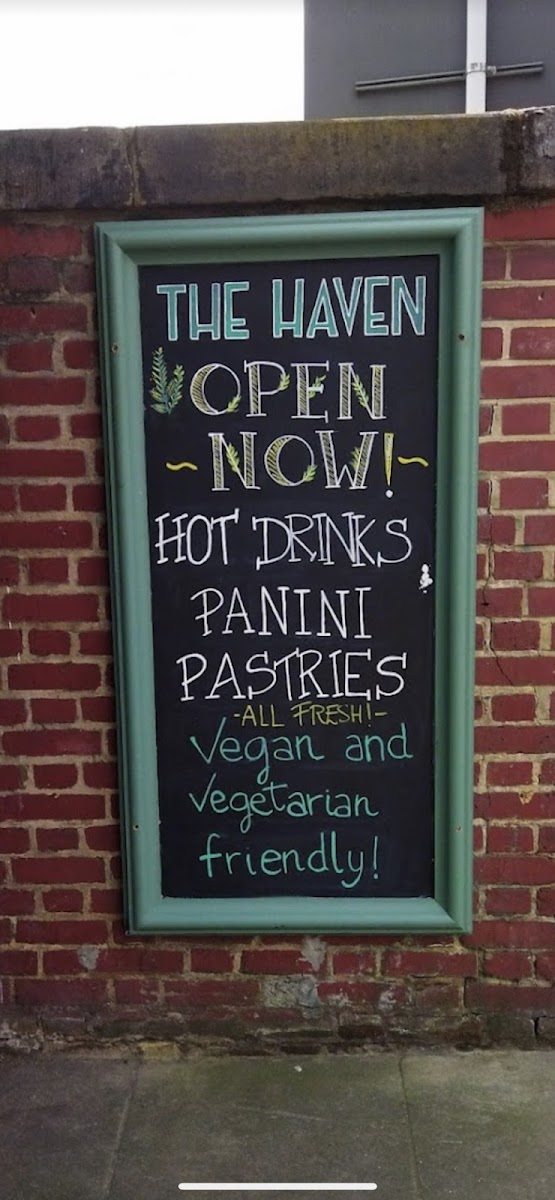 THE HAVEN
OPEN
~NOW!~
HOT DRINKS
PANINI
PASTRIES
-ALL FRESH!-
Vegan and
Vegetarian
friendly!